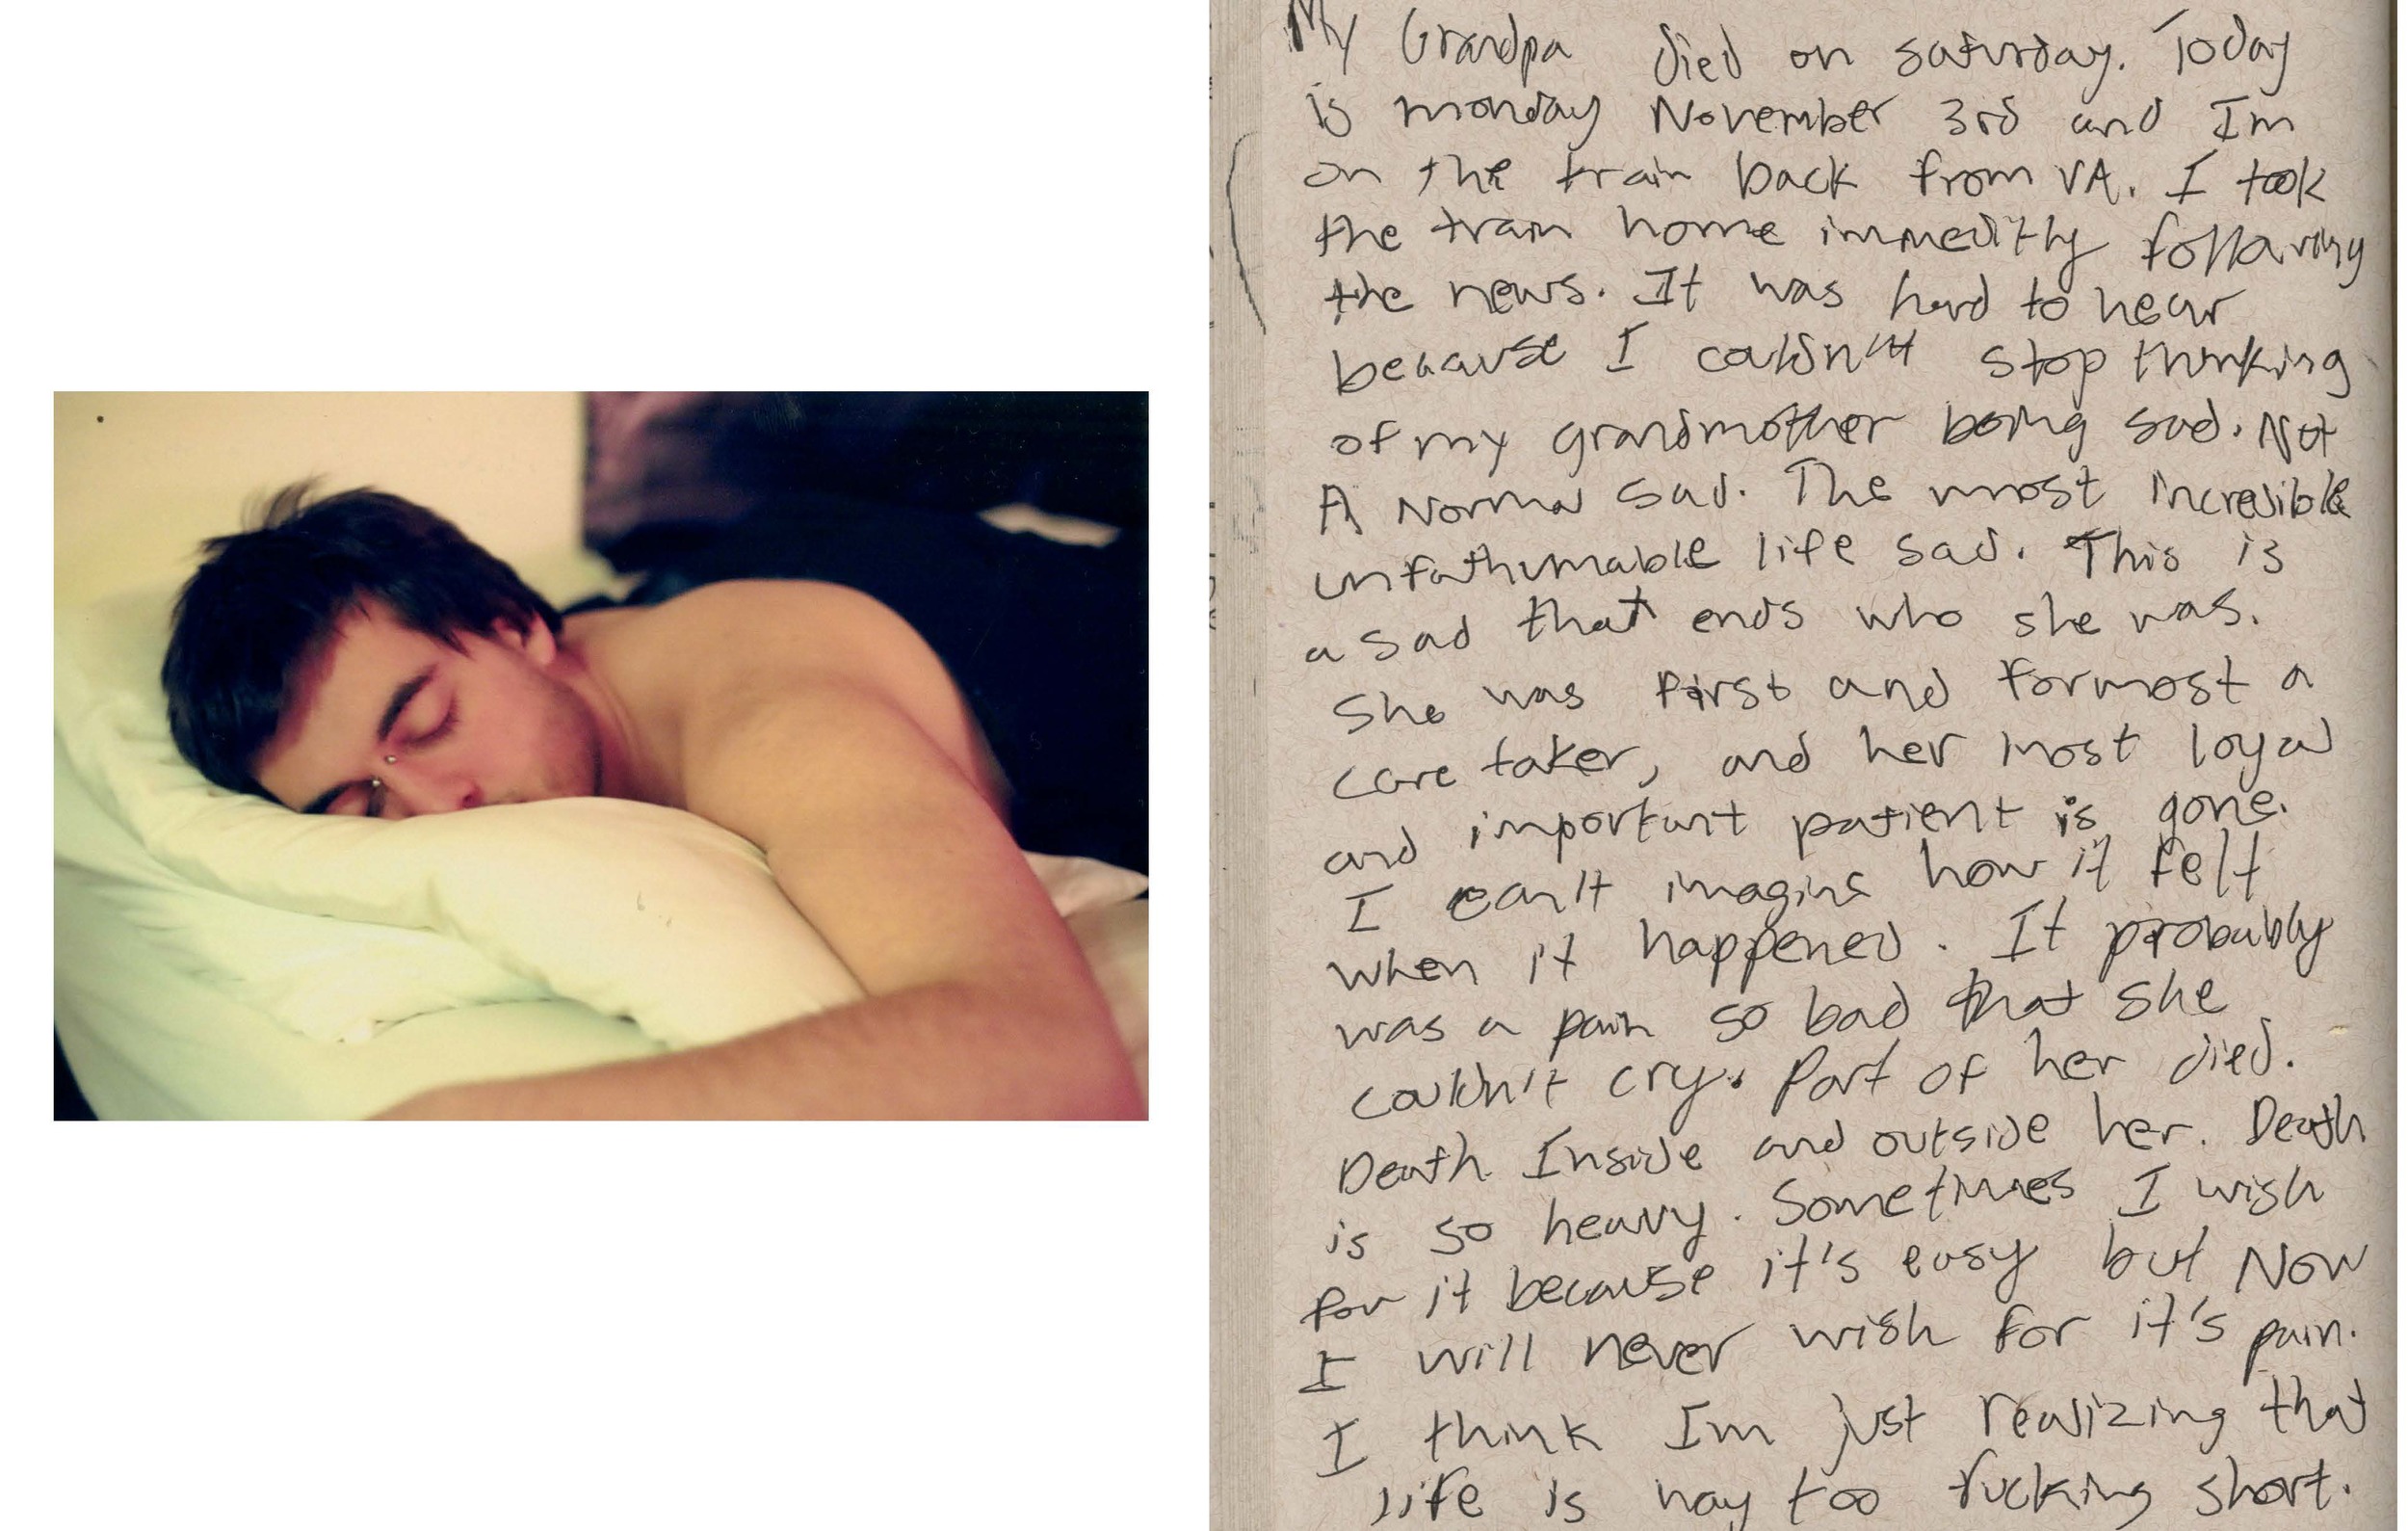 My Grandpa died on saturday. Today
is monday November 3rd and Im
on the train back from VA. I took
the train home immeditly following
the news. It was hard to hear
because I couldn't stop thinking
of my grandmother being sad. Not
A Normal sad. The most incredible
unfathumable life sad. This is
a sad that ends who she was.
She was first and formost a
care taker, and her most loyal
and important patient is gone.
I can't imagine how it felt
when it happened. It probably
was a pain so bad that she
couldn't cry. Part of her died.
Death Inside and outside her. Death
is so heavy. Sometimes I wish
for it because it's easy but Now
I will never wish for it's pain.
I think Im just realizing that
life is way too fucking short.